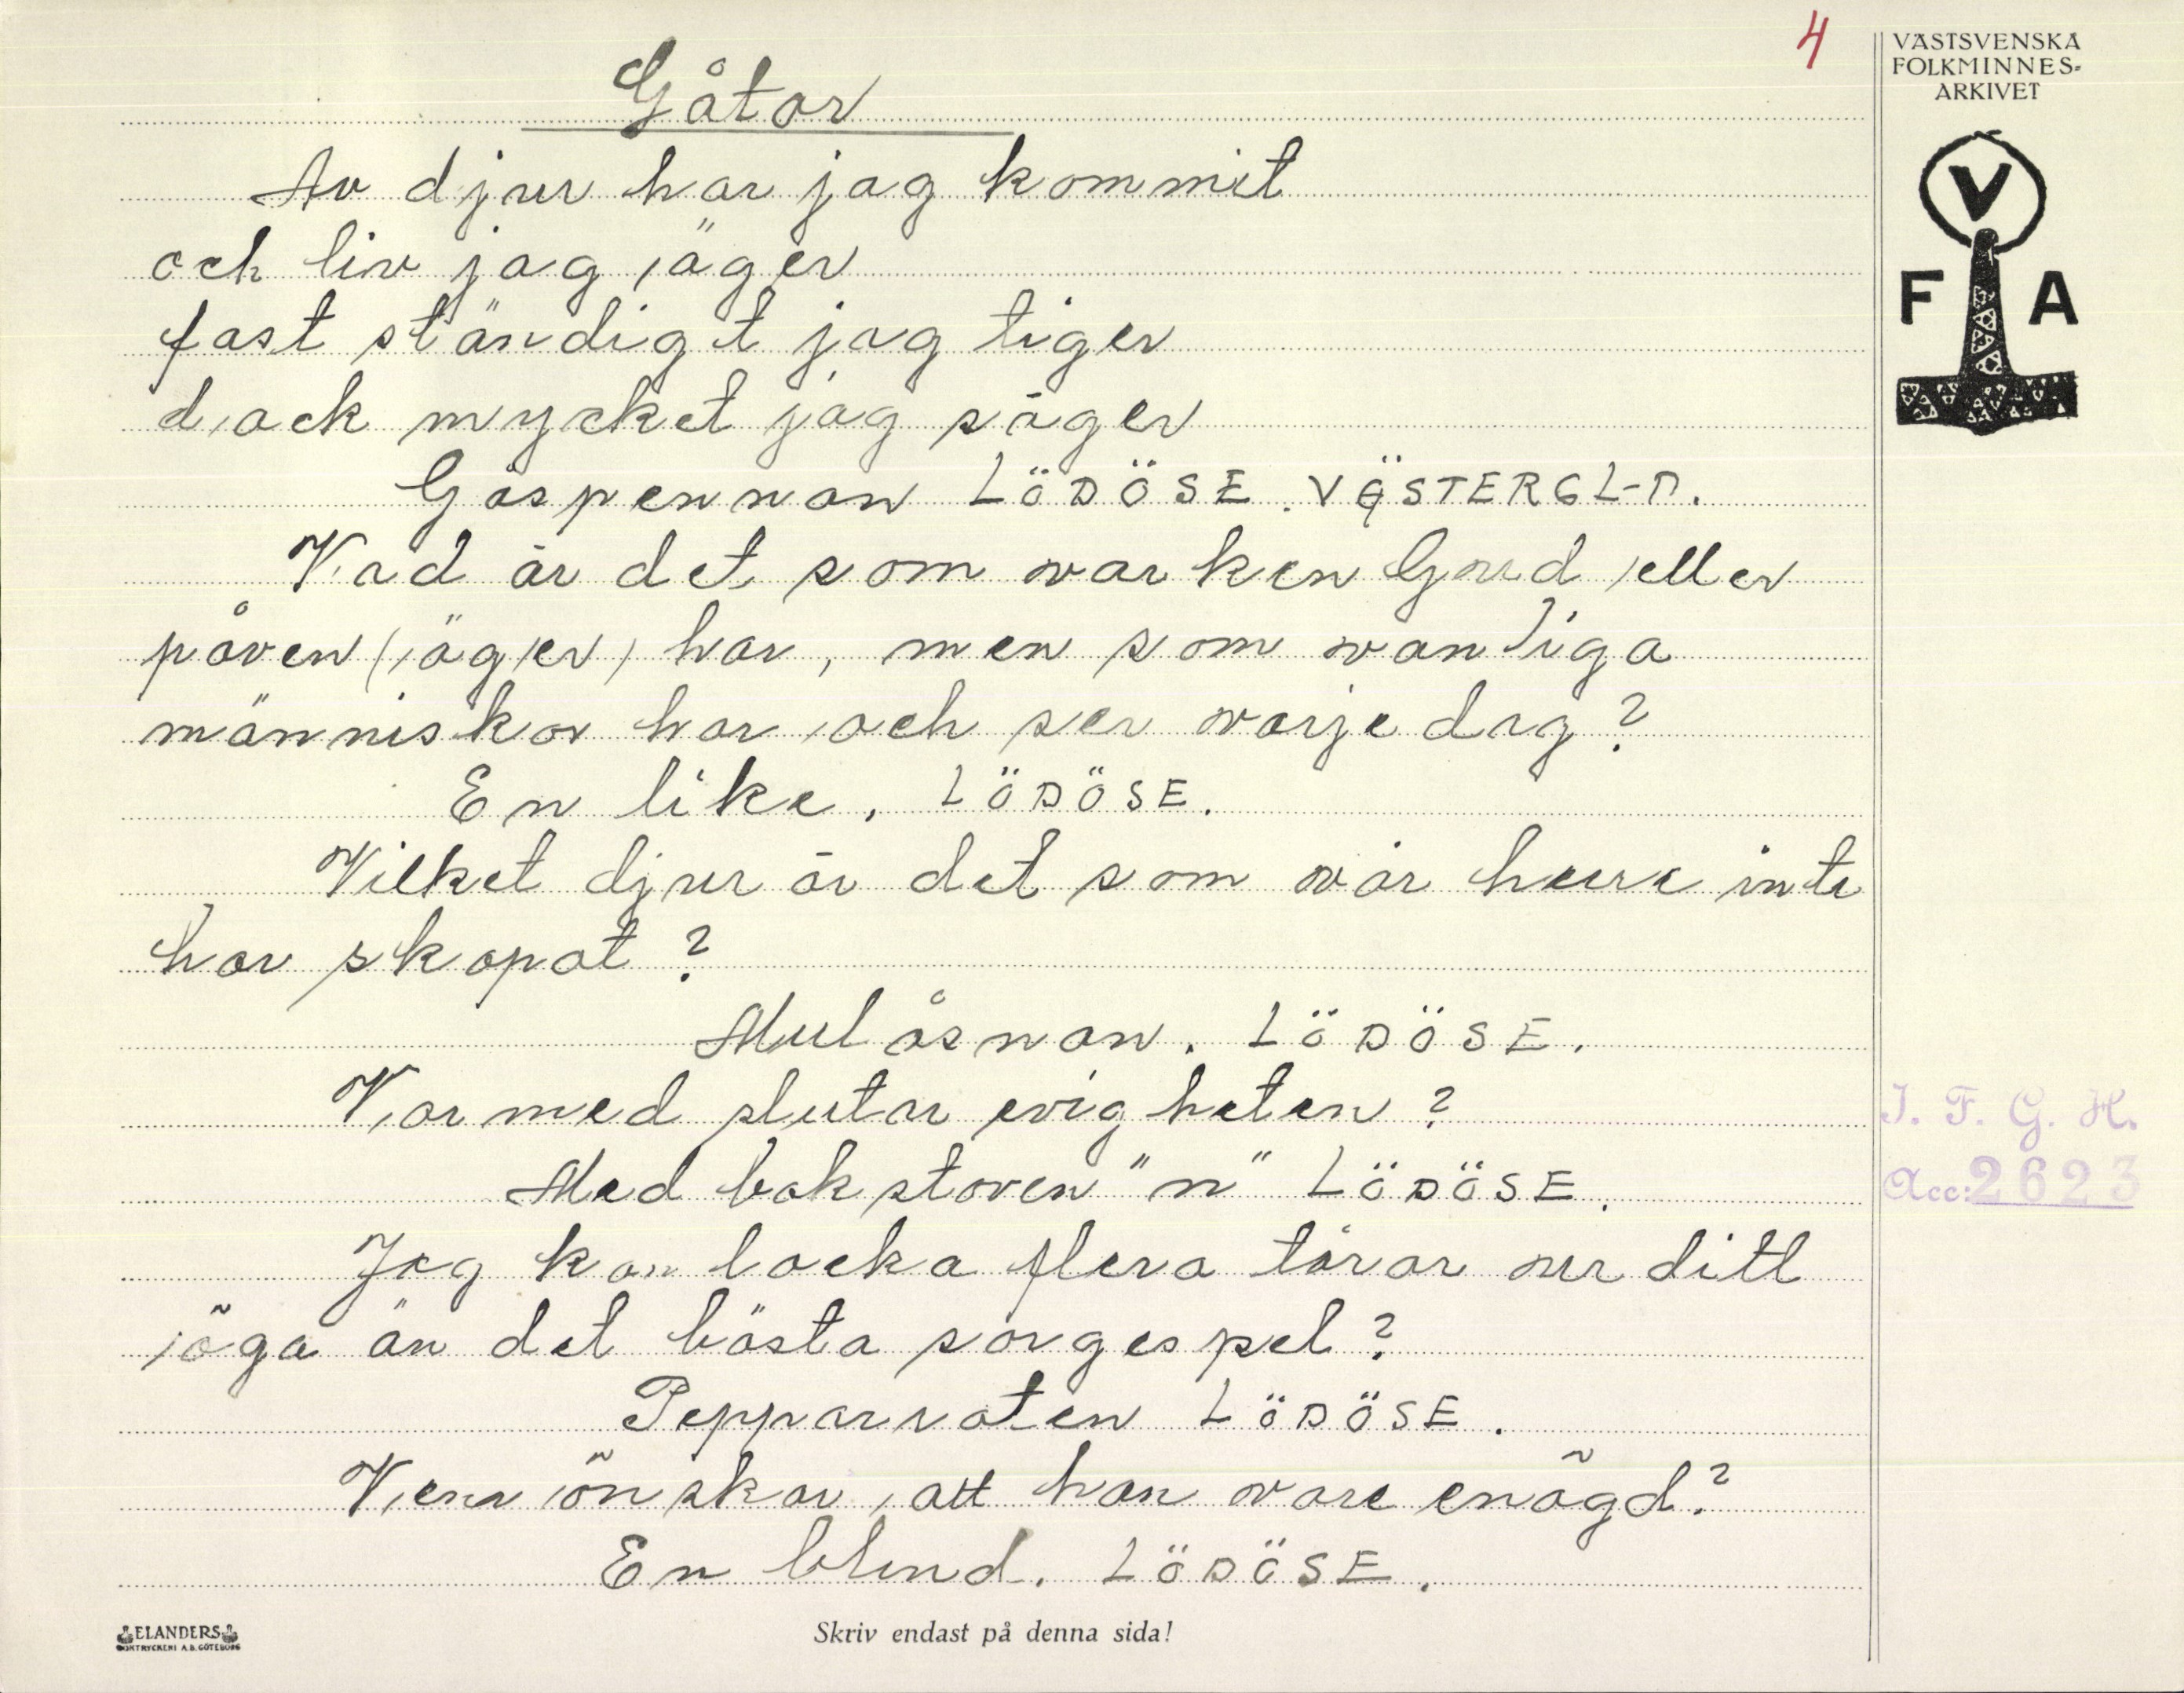 4
VÄSTSVENSKA
FOLKMINNES-
ARKIVET
V
F A
Gåtor
Av djur har jag kommit
och liv jag äger
fast ständigt jag tiger
dock mycket jag säger
Gåspennan LÖDÖSE. VÄSTERGL-D.
Vad är det som varken Gud eller
påven (äger) har, men som vanliga
människor har och ser varje dag?
En like. LÖDÖSE.
Vilket djur är det som vår herre inte
har skapat?
Mulåsnan. LÖDÖSE.
Varmed slutar evigheten?
Med bokstaven "n" LÖDÖSE.
Jag kan locka flera tårar ur ditt
öga än det bästa sorgespel?
Pepparroten LÖDÖSE.
Vem önskar, att han vore enögd?
En blind. LÖDÖSE.
I. F. G. H.
Acc: 2623
ELANDERS
BOKTRYCKERI A.B. GÖTEBORG
Skriv endast på denna sida!